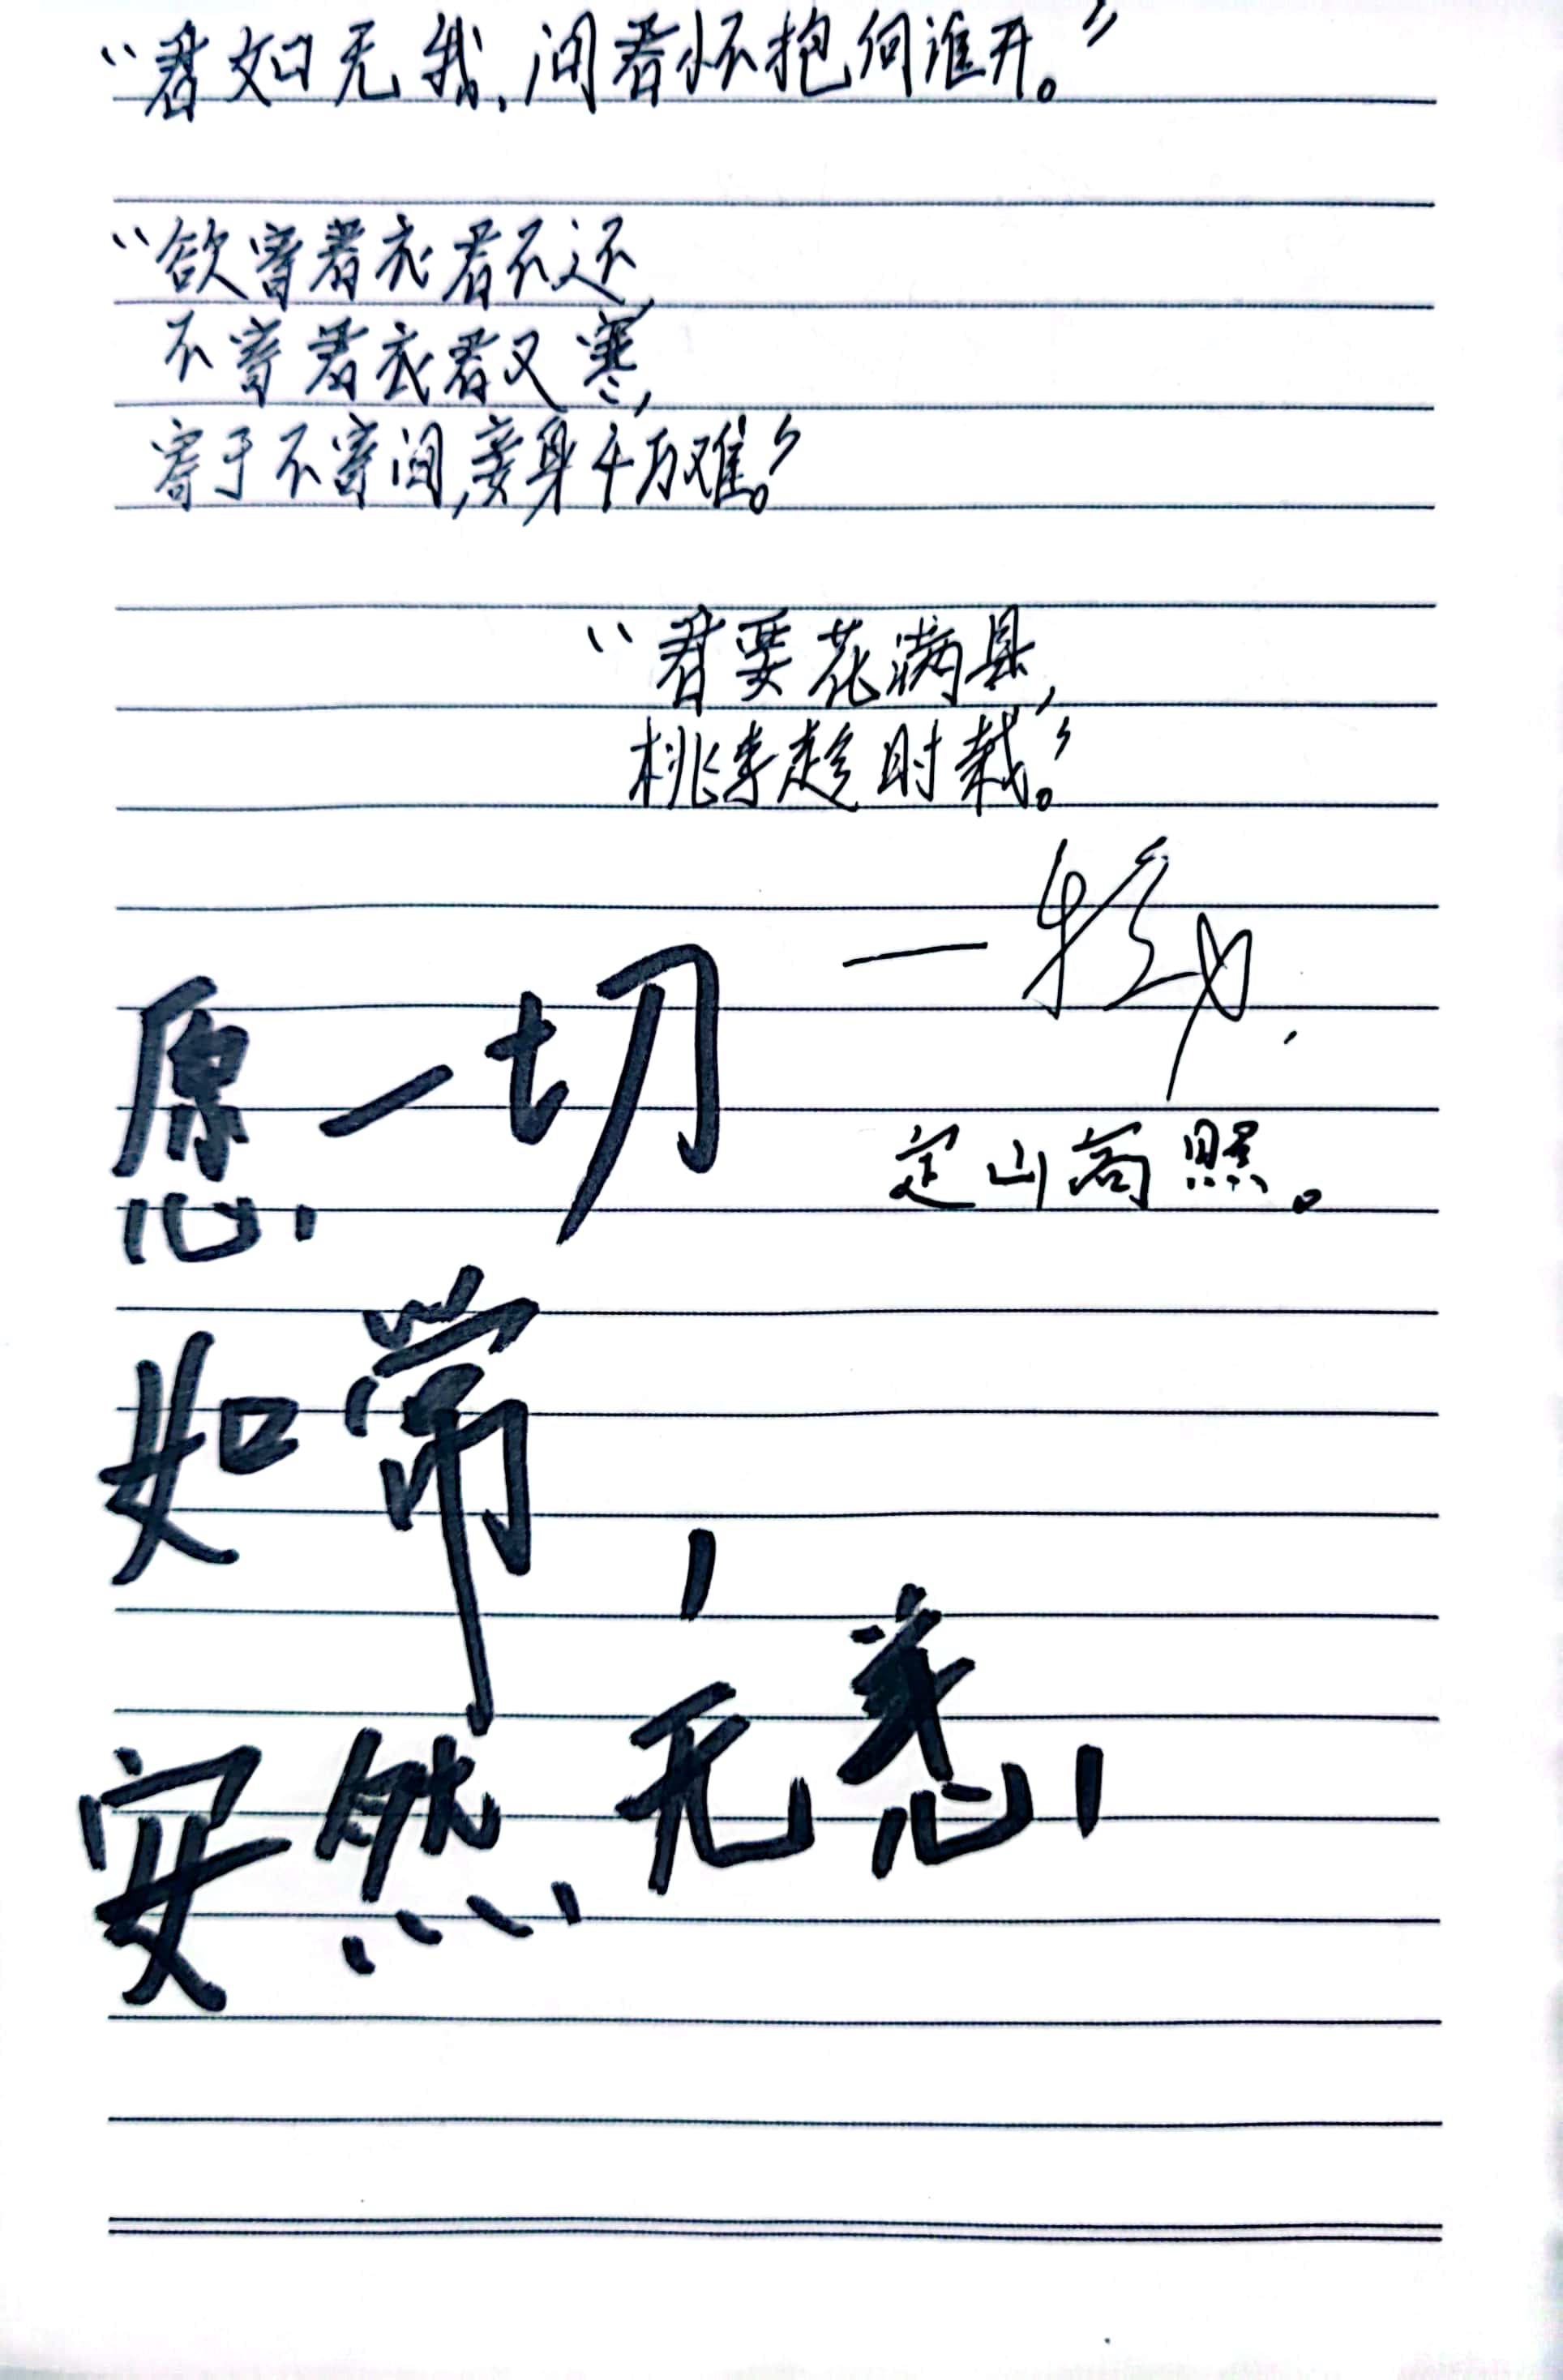 “君如无我,问君怀抱向谁开。”
“欲寄君衣君不还,
不寄君衣君又寒,
寄于不寄间,妾身千万难。”
“君要花满县,
桃李趁时栽。”
愿一切
定山高照。
如常,
安然无恙